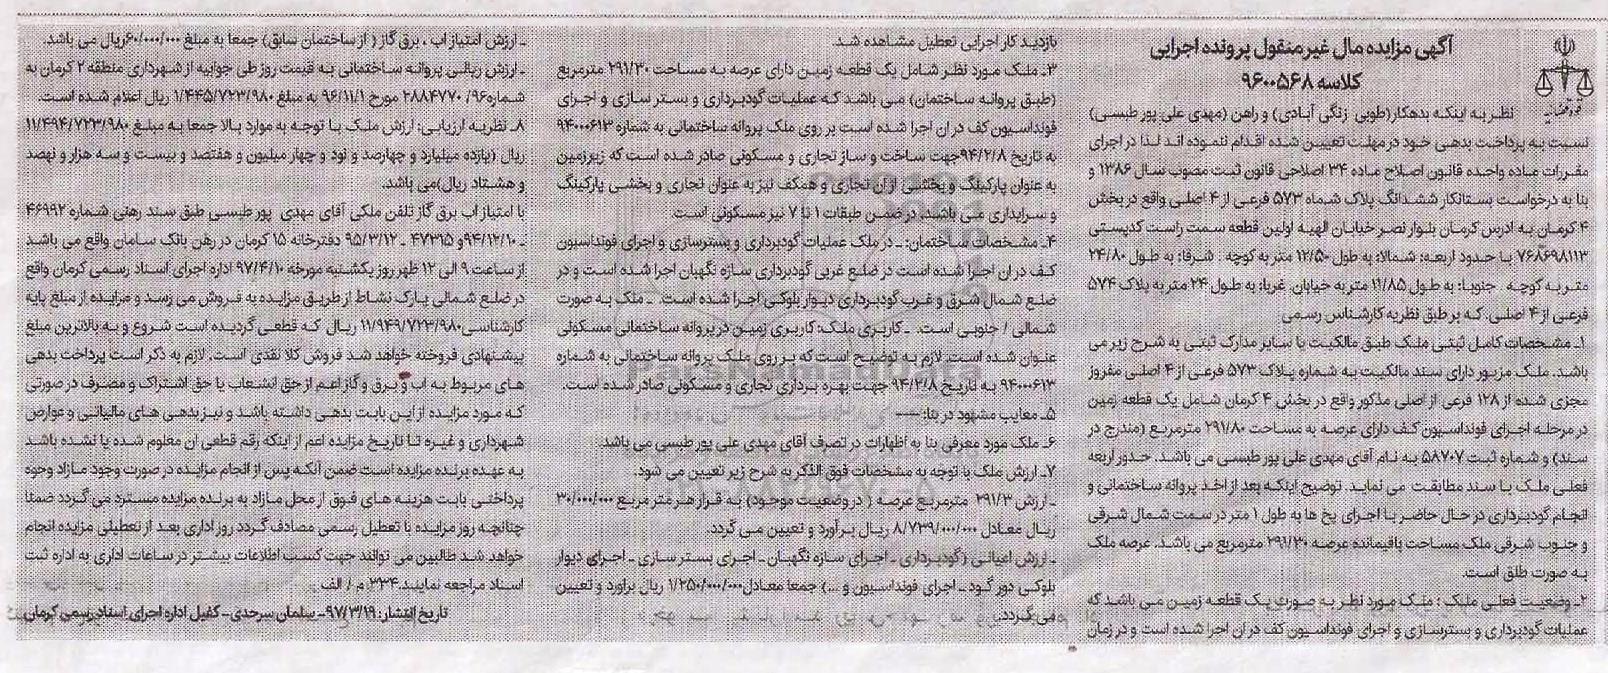 آگهی مزایده مال غیر منقول پرونده اجرایی
کلاسه ۹۶۰۰۵۶۸
نظر به اینکه بدهکار(طوبی زنگی آبادی) و راهن (مهدی علی پور طبسی)
نسبت به پرداخت بدهی خود در مهلت تعیین شده اقدام ننموده اند لذا در اجرای
مقررات ماده واحده قانون اصلاح ماده ۳۴ اصلاحی قانون ثبت مصوب سال ۱۳۸۶ و
بنا به درخواست بستانکار ششدانگ پلاک شماه ۵۷۳ فرعی از ۴ اصلی واقع در بخش
۴ کرمان به ادرس کرمان بلوار نصر خیابان الهیه اولین قطعه سمت راست کدپستی
۷۶۸۶۹۸۱۱۳ با حدود اربعه: شمالا: به طول ۱۲/۵۰ متر به کوچه . شرقا: به طول ۲۴/۸۰
متر به کوچه . جنوبا: به طول ۱۱/۸۵ متر به خیابان. غربا: به طول ۲۴ متر به پلاک ۵۷۴
فرعی از ۴ اصلی. که بر طبق نظریه کارشناس رسمی
۱ـ مشخصات کامل ثبتی ملک طبق مالکیت یا سایر مدارک ثبتی به شرح زیر می
باشد. ملک مزبور دارای سند مالکیت به شماره پلاک ۵۷۳ فرعی از ۴ اصلی مفروز
مجزی شده از ۱۲۸ فرعی از اصلی مذکور واقع در بخش ۴ کرمان شامل یک قطعه زمین
در مرحله اجرای فونداسیون کف دارای عرصه به مساحت ۲۹۱/۸۰ مترمربع (مندرج در
سند) و شماره ثبت ۵۸۷۰۷ به نام آقای مهدی علی پور طبسی می باشد. حدور اربعه
فعلی ملک با سند مطابقت می نماید. توضیح اینکه بعد از اخذ پروانه ساختمانی و
انجام گودبرداری در حال حاضر با اجرای پخ ها به طول ۱ متر در سمت شمال شرقی
و جنوب شرقی ملک مساحت باقیمانده عرصه ۲۹۱/۳۰ مترمربع می باشد. عرصه ملک
به صورت طلق است.
۲ـ وضعیت فعلی ملک : ملک مورد نظر به صورت یک قطعه زمین می باشد که
عملیات گودبرداری و بسترسازی و اجرای فونداسیون کف در ان اجرا شده است و در زمان
بازدید کار اجرایی تعطیل مشاهده شد.
۳ـ ملک مورد نظر شامل یک قطعه زمین دارای عرصه به مساحت ۲۹۱/۳۰ مترمربع
(طبق پروانه ساختمان) می باشد که عملیات گودبرداری و بستر سازی و اجرای
فونداسیون کف در ان اجرا شده است بر روی ملک پروانه ساختمانی به شماره ۹۴۰۰۰۶۱۳
به تاریخ ۹۴/۲/۸جهت ساخت و ساز تجاری و مسکونی صادر شده است که زیرزمین
به عنوان پارکینگ و بخشی از ان تجاری و همکف نیز به عنوان تجاری و بخشی پارکینگ
و سرایداری می باشد. در ضمن طبقات ۱ تا ۷ نیز مسکونی است.
۴ـ مشخصات ساختمان: ـ در ملک عملیات گودبرداری و بسترسازی و اجرای فونداسیون
کف در ان اجرا شده است در ضلع غربی گودبرداری سازه نگهبان اجرا شده است و در
ضلع شمال شرق و غرب گودبرداری دیوار بلوکی اجرا شده است. ـ ملک به صورت
شمالی / جنوبی است. ـ کاربری ملک: کاربری زمین در پروانه ساختمانی مسکونی
عنوان شده است. لازم به توضیح است که بر روی ملک پروانه ساختمانی به شماره
۹۴۰۰۰۶۱۳ به تاریخ ۹۴/۲/۸ جهت بهره برداری تجاری و مسکونی صادر شده است.
۵ـ معایب مشهود در بنا: ــــ
۶ـ ملک مورد معرفی بنا به اظهارات در تصرف آقای مهدی علی پور طبسی می باشد.
۷ـ ارزش ملک با توجه به مشخصات فوق الذکر به شرح زیر تعیین می شود.
ـ ارزش ۲۹۱/۳ مترمربع عرصه ( در وضعیت موجود) به قرار هر متر مربع ۳۰/۰۰۰/۰۰۰
ریال معادل ۸/۷۳۹/۰۰۰/۰۰۰ ریال برآورد و تعیین می گردد.
ـ ارزش اعیانی (گودبرداری ـ اجرای سازه نگهبان ـ اجرای بستر سازی ـ اجرای دیوار
بلوکی دور گود ـ اجرای فونداسیون و ...) جمعا معادل۱/۲۵۰/۰۰۰/۰۰۰ ریال براورد و تعیین
می گردد.
ـ ارزش امتیاز اب ، برق گاز ( از ساختمان سابق) جمعا به مبلغ ۶۰/۰۰۰/۰۰۰ریال می باشد.
ـ ارزش ریالی پروانه ساختمانی به قیمت روز طی جوابیه از شهرداری منطقه ۲ کرمان به
شماره۹۶/ ۲۸۸۴۷۷۰ مورخ ۹۶/۱۱/۱ به مبلغ ۱/۴۴۵/۷۲۳/۹۸۰ ریال اعلام شده است.
۸ـ نظریه ارزیابی: ارزش ملک با توجه به موارد بالا جمعا به مبلغ ۱۱/۴۹۴/۷۲۳/۹۸۰
ریال (یازده میلیارد و چهارصد و نود و چهار میلیون و هفتصد و بیست و سه هزار و نهصد
و هشتاد ریال)می باشد.
با امتیاز اب برق گاز تلفن ملکی آقای مهدی پور طبسی طبق سند رهنی شماره ۴۶۹۹۲
ـ ۹۴/۱۲/۱۰و ۴۷۳۱۵ ـ ۹۵/۳/۱۲ دفترخانه ۱۵ کرمان در رهن بانک سامان واقع می باشد
از ساعت ۹ الی ۱۲ ظهر روز یکشنبه مورخه ۹۷/۴/۱۰ اداره اجرای اسناد رسمی کرمان واقع
در ضلع شمالی پارک نشاط از طریق مزایده به فروش می رسد و مزایده از مبلغ پایه
کارشناسی۱۱/۹۴۹/۷۲۳/۹۸۰ ریال که قطعی گردیده است شروع و به بالاترین مبلغ
پیشنهادی فروخته خواهد شد فروش کلا نقدی است. لازم به ذکر است پرداخت بدهی
های مربوط به اب و برق و گاز اعم از حق انشعاب یا حق اشتراک و مصرف در صورتی
که مورد مزایده از این بابت بدهی داشته باشد و نیز بدهی های مالیاتی و عوارض
شهرداری و غیره تا تاریخ مزایده اعم از اینکه رقم قطعی ان معلوم شده یا نشده باشد
به عهده برنده مزایده است ضمن آنکه پس از انجام مزایده در صورت وجود مازاد وجوه
پرداختی بابت هزینه های فوق از محل مازاد به برنده مزایده مسترد می گردد ضمنا
چنانچه روز مزایده با تعطیل رسمی مصادف گردد روز اداری بعد از تعطیلی مزایده انجام
خواهد شد طالبین می توانند جهت کسب اطلاعات بیشتر در ساعات اداری به اداره ثبت
اسناد مراجعه نمایند.۳۳۴ م / الف
تاریخ انتشار: ۹۷/۳/۱۹ـ سلمان سرحدی ـ کفیل اداره اجرای اسناد رسمی کرمان
ParsNamadData